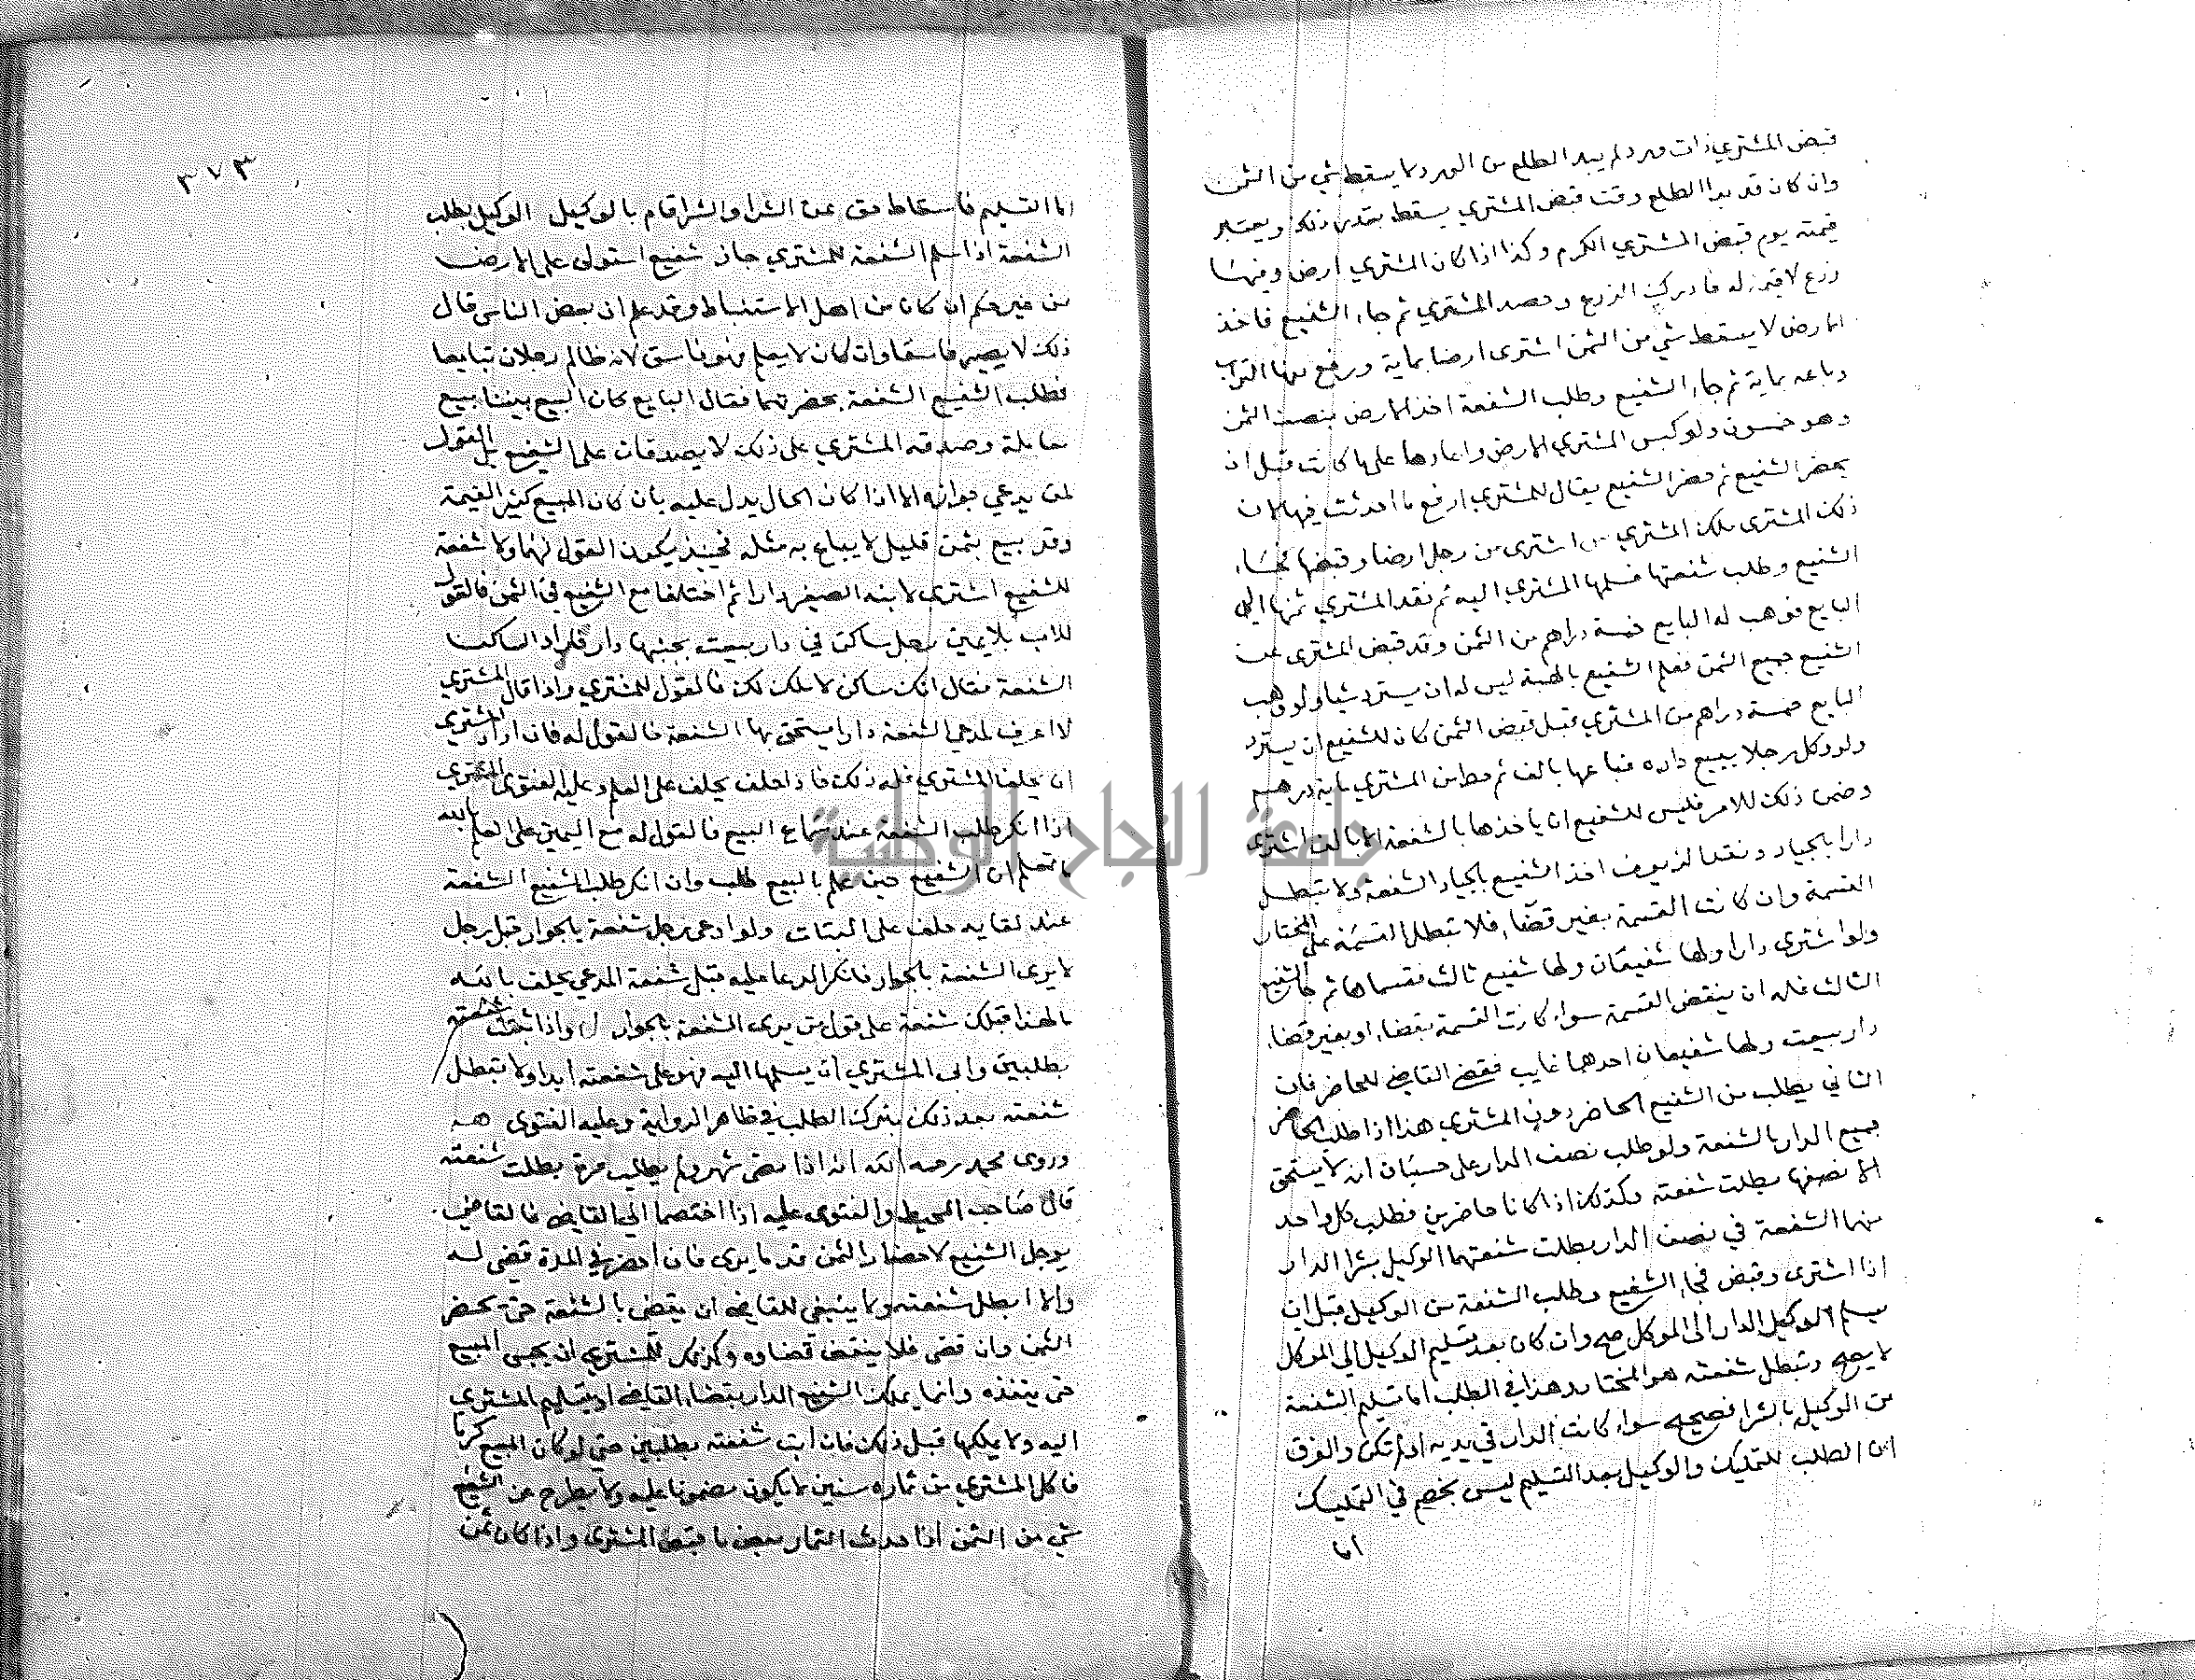 قبض المشتري ذات ورد ولم يبد الطلع من الورد لا يسقط شي من الثمن
وان كان قد بدا الطلع وقت قبض المشتري يسقط بقدر ذلك ويعتبر
قيمته يوم قبض المشتري الكرم وكذا اذا كان المشتري ارض وفيها
زرع لا قيمة له فادرك الزرع وحصد المشتري ثم جاء الشفيع فاخذ
الارض لا يسقط شي من الثمن اشترى ارضا بماية ورفع منها التراب
وباعه بماية ثم جاء الشفيع وطلب الشفعة اخذ الارض بنصف الثمن
وهو خمسون ولو كبس المشتري الارض واعادها على ما كانت قبل ان
يحضر الشفيع ثم حضر الشفيع يقال للمشتري ارفع ما احدثت فيها لان
ذلك المشترى ملك المشتري اشترى من رجل ارضا وقبضها فجاء
الشفيع وطلب شفعتها فسلمها المشتري اليه ثم نقد المشتري ثمنها الى
البايع فوهب له البايع خمسة دراهم من الثمن وقد قبض المشترى من
الشفيع جميع الثمن فعلم الشفيع بالهبة ليس له ان يسترد شيا ولو وهب
البايع خمسة دراهم من المشتري قبل قبض الثمن كان للشفيع ان يسترد
ولو وكل رجلا ببيع داره فباعها بالف ثم حط من المشتري ماية درهم
وضمن ذلك للامر فليس للشفيع ان ياخذها بالشفعة الا بالف اشترى
دارا بالجياد ونقد الزيوف اخذ الشفيع بالجياد الشفعة ولا تبطل
القسمة وان كانت القسمة بغير قضاء فلا تبطل القسمة على المختار
ولو اشترى دارا ولها شفيعان ولها شفيع ثالث فقسماها ثم جا الشفيع
الثالث فله ان ينقض القسمة سواء كانت القسمة بقضاء او بغير قضاء
دار بيعت ولها شفيعان احدهما غايب فقضى القاضي للحاضر فان
الثاني يطلب من الشفيع الحاضر دون المشتري هذا اذا طلب الحاضر
جميع الدار بالشفعة ولو طلب نصف الدار على حسبان ان لا يستحق
الا نصفها بطلت شفعته وكذلك اذا كانا حاضرين فطلب كل واحد
منهما الشفعة في نصف الدار بطلت شفعتهما الوكيل بشرا الدار
اذا اشترى وقبض فجاء الشفيع وطلب الشفعة من الوكيل قبل ان
يسلم الوكيل الدار الى الموكل صح وان كان بعد تسليم الوكيل الى الموكل
لا يصح وتبطل شفعته هو المختار وهذا في الطلب اما تسليم الشفعة
من الوكيل بالشرا فصحيح سواء كانت الدار في يديه او لم تكن والفرق
ان الطلب للتمليك والوكيل بعد التسليم ليس بخصم في التمليك
اما
٣٧٣
اما التسليم فاسقاط حق عن الشرا والشرا قام بالوكيل الوكيل بطلب
الشفعة اذا سلم الشفعة للمشتري جاز شفيع استولى على الارض
من غير حكم ان كان من اهل الاستنباط وقد علم ان بعض الناس قال
ذلك لا يصير فاسقا وان كان لا يعلم فهو فاسق لانه ظالم رجلان تبايعا
فطلب الشفيع الشفعة بحضرتهما فقال البايع كان البيع بيننا بيع
معاملة وصدقه المشتري على ذلك لا يصدقان على الشفيع بل القول
لمن يدعي جوازه الا اذا كان الحال يدل عليه بان كان المبيع كثير القيمة
وقد بيع بثمن قليل لا يباع به مثله فحينئذ يكون القول لهما ولا شفعة
للشفيع اشترى لابنه الصغير دارا ثم اختلفا مع الشفيع في الثمن فالقول
للاب بلا يمين رجل ساكن في دار بيعت بجنبها دار فاراد الساكن
الشفعة فقال انك ساكن لا ملك لك فالقول للمشتري واذا قال المشتري
لا اعرف لمدعي الشفعة دارا يستحق بها الشفعة فالقول له فان اراد المشتري
ان يحلف المشتري فله ذلك فاذا حلف يحلف على العلم وعليه الفتوى المشتري
اذا انكر طلب الشفعة عند سماع البيع فالقول له مع اليمين على العلم بالله
ما تعلم ان الشفيع حين علم بالبيع طلب وان انكر طلب الشفيع الشفعة
عند لقايه حلف على البتات ولو ادعى رجل شفعة بالجوار قبل رجل
لا يرى الشفعة بالجوار فانكر المدعا عليه قبل شفعة المدعي يحلف بالله
ما لهذا قبلك شفعة على قول من يرى الشفعة بالجوار واذا ثبت شفعته
بطلبين وابى المشتري ان يسلمها اليه فهو على شفعته ابدا ولا تبطل
شفعته بعد ذلك بترك الطلب في ظاهر الرواية وعليه الفتوى
وروى محمد رحمه الله انه اذا مضى شهر ولم يطلب مرة بطلت شفعته
قال صاحب المحيط والفتوى عليه اذا اختصما الى القاضي فالقاضي
يوجل الشفيع لاحضار الثمن قدر ما يرى فان احضر في المدة قضى له
والا ابطل شفعته ولا ينبغي للقاضي ان يقضي بالشفعة حتى يحضر
الثمن وان قضى فلا ينقض قضاوه وكذلك للمشتري ان يحبس المبيع
حتى ينقده وانما يملك الشفيع الدار بقضاء القاضي او بتسليم المشتري
اليه ولا يملكها قبل ذلك فان اثبت شفعته بطلبين حتى لو كان المبيع كرما
فاكل المشتري من ثماره سنين لا يكون مضمونا عليه ولا يطرح عن الشفيع
شي من الثمن اذا حدث الثمار بعض ما قبض المشتري واذا كان ثمن
جامعة النجاح الوطنية